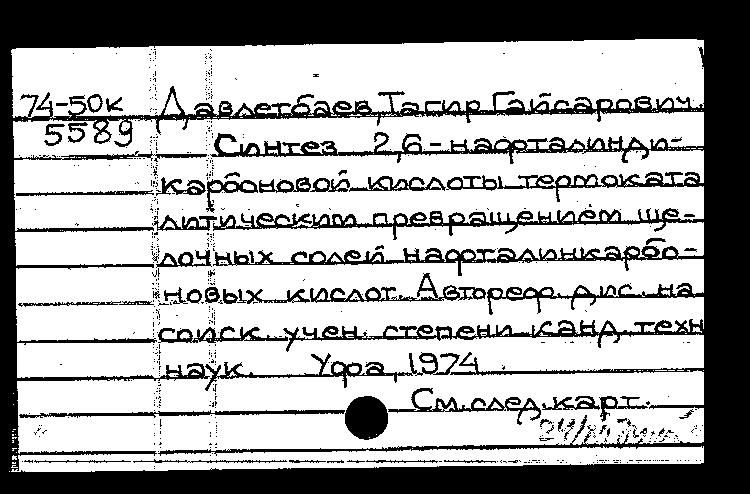 74-50к Давлетбаев, Тагир Гайсарович.
5589
Синтез 2,6-нафталинди-
карбоновой кислоты термоката
литическим превращением ще-
лочных солей нафталинкарбо-
новых кислот. Автореф. дис. на
соиск. учен. степени канд. техн
наук. Уфа, 1974.
См. след. карт.